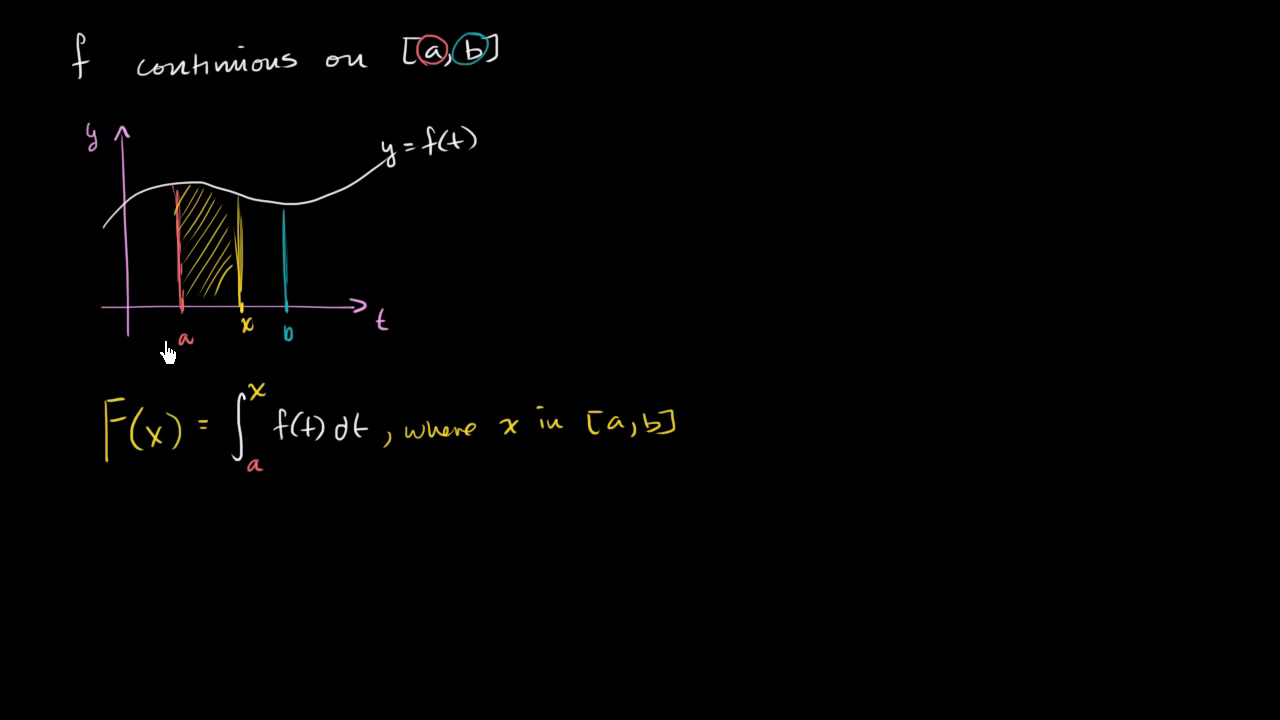 f continuous on [a, b]
y
y = f(t)
a
x
b
t
F(x) = ∫ₐˣ f(t) dt , where x in [a, b]